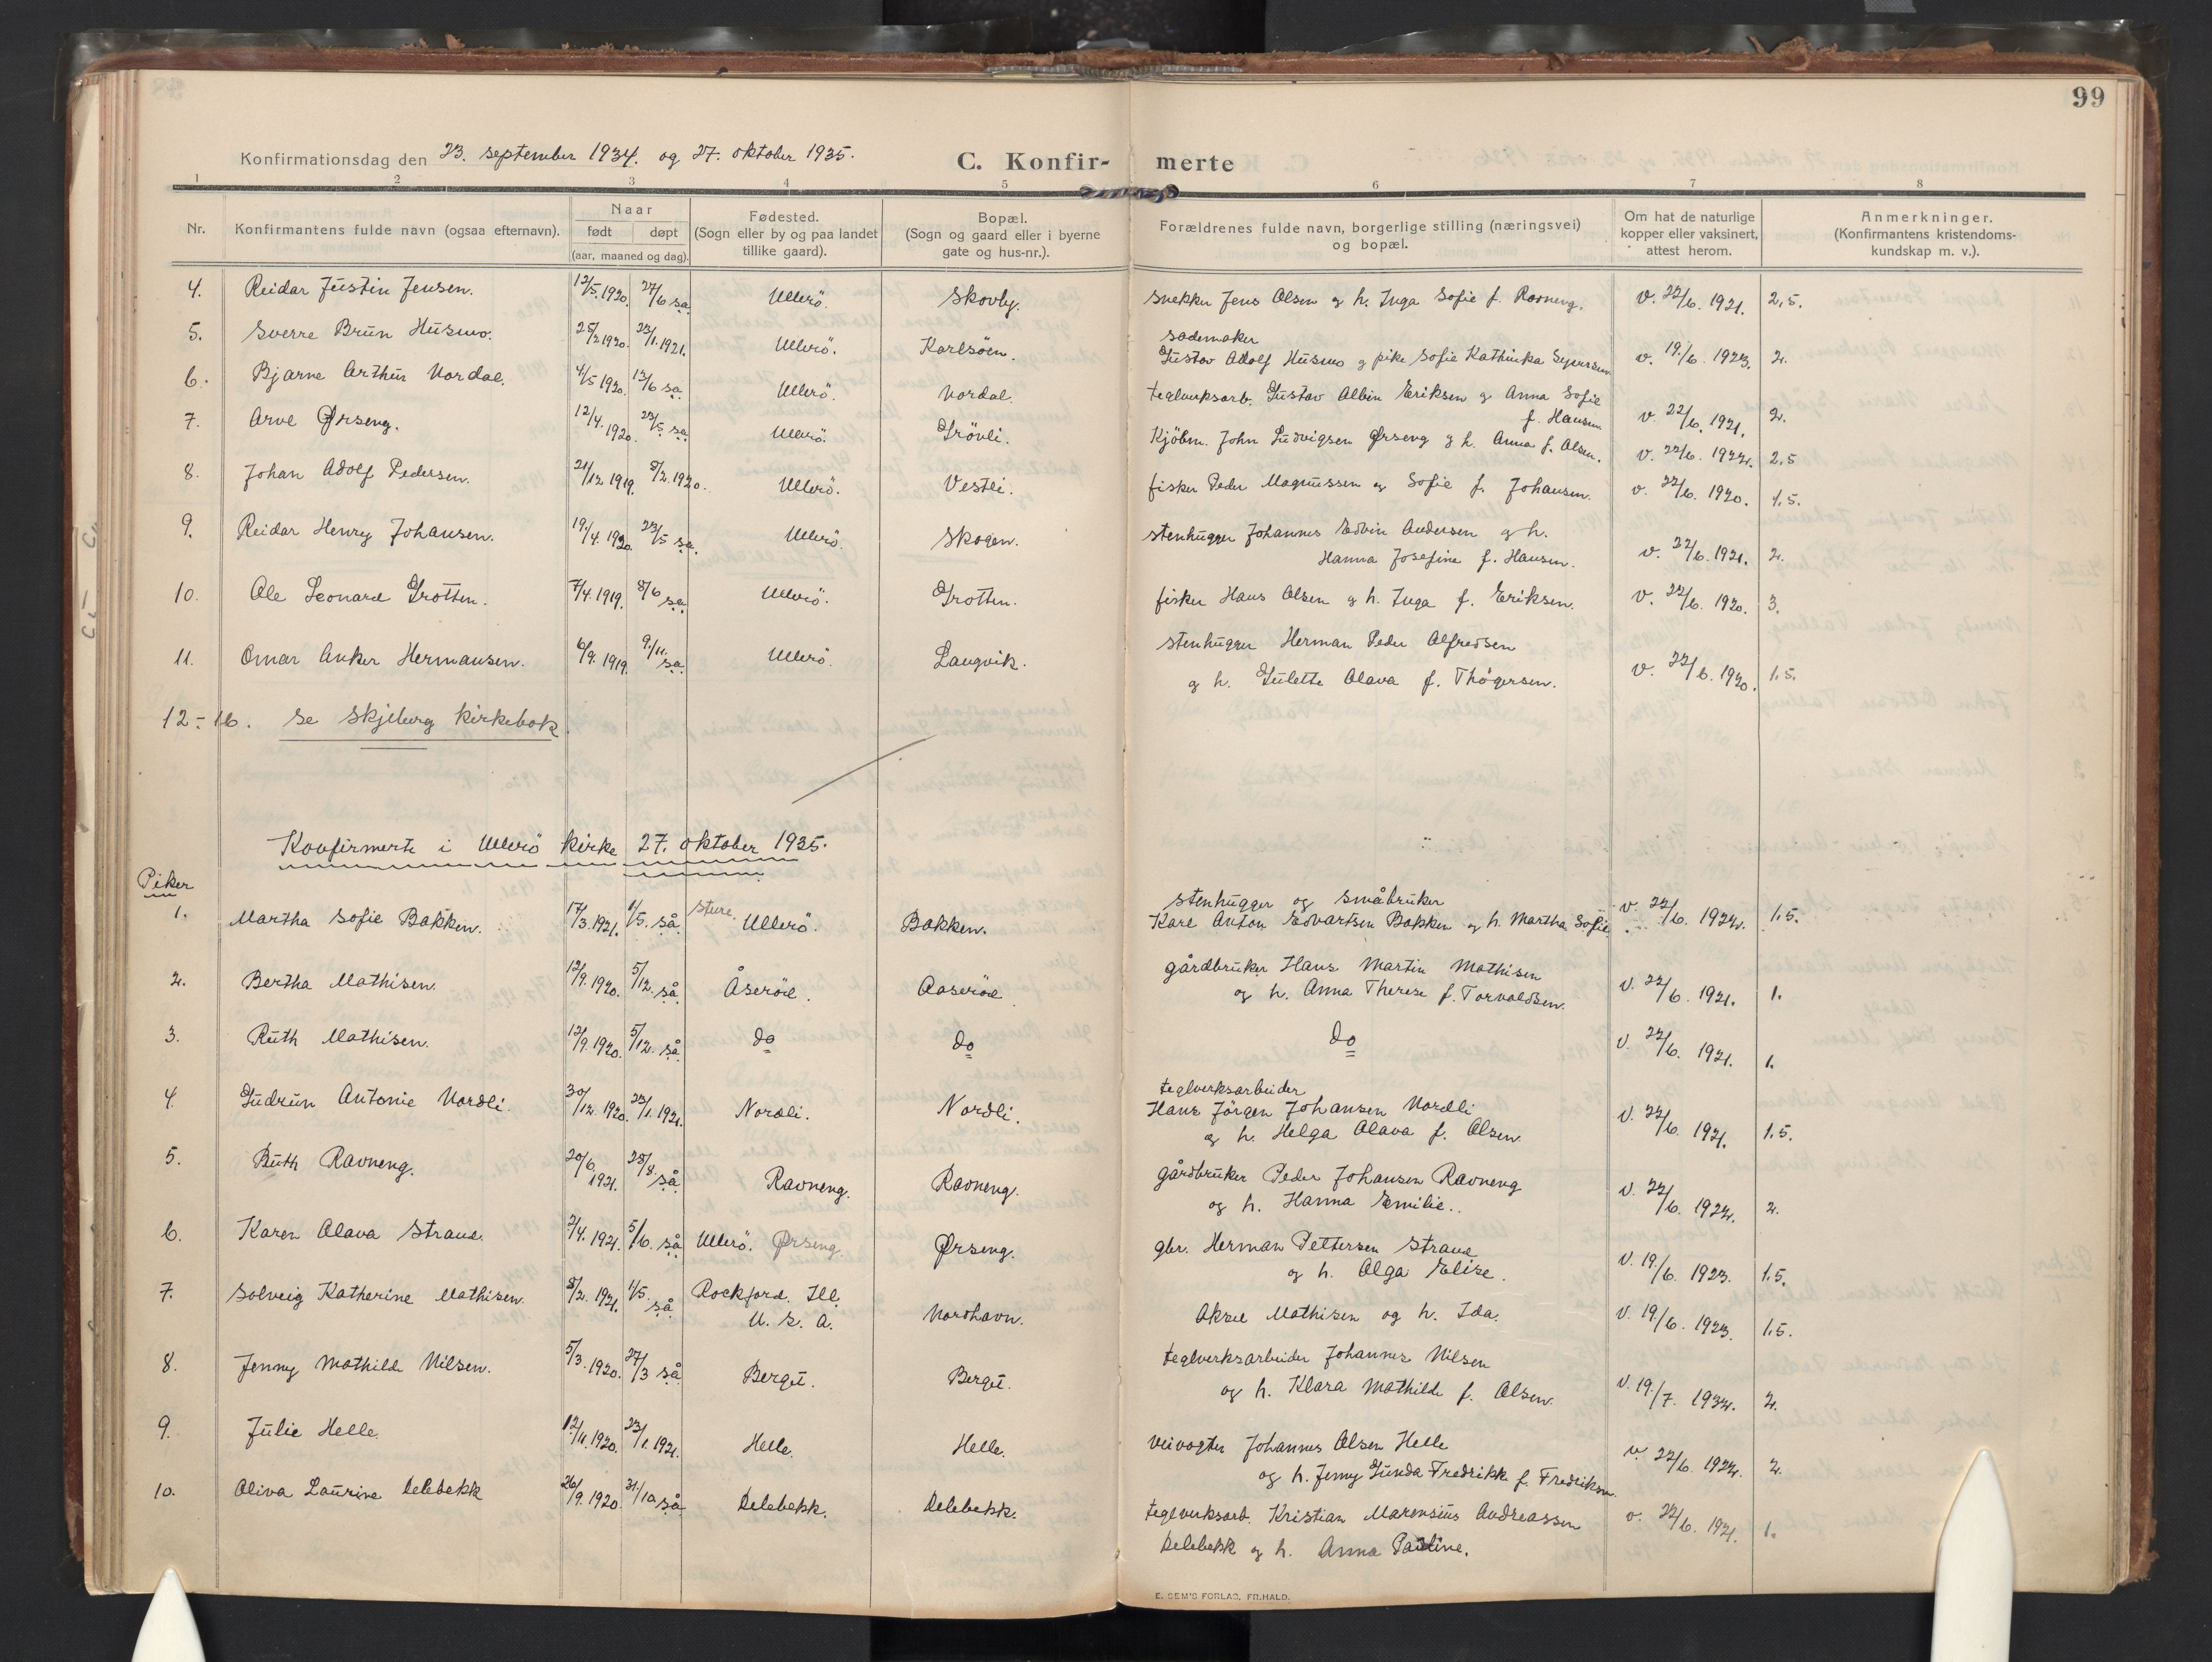 99
Konfirmationsdag den 23. september 1934. og 27. oktober 1935.
C. Konfir- merte
1 2 3 4 5 6 7 8
Nr.
Konfirmantens fulde navn (ogsaa efternavn).
Naar
født døpt
(aar, maaned og dag).
Fødested.
(Sogn eller by og paa landet
tillike gaard).
Bopæl.
(Sogn og gaard eller i byerne
gate og hus-nr.).
Forældrenes fulde navn, borgerlige stilling (næringsvei)
og bopæl.
Om hat de naturlige
kopper eller vaksinert,
attest herom.
Anmerkninger.
(Konfirmantens kristendoms-
kundskap m. v.).
4. Reidar Justin Jensen. 12/5. 1920. 27/6 sa. Ullerö. Skovby. Snekker Jens Olsen og h. Inga Sofie f. Ravneng. v. 22/6. 1921. 2,5.
5. Sverre Brun Husmo. 25/2 1920. 23/1. 1921. Ullerö. Karlsöen. sadlmaker
Gustav Adolf Husmo og pike Sofie Kathinka Syversen v. 19./6. 1923. 2.
6. Bjarne Arthur Nordal. 4/5 1920. 13/6 sa. Ullerö. Nordal. teglverksarb. Gustav Albin Eriksen og Anna Sofie
f. Hansen v. 22/6. 1921. 2.
7. Arve Ørseng. 12/4. 1920. 23/5 sa. Ullerö. Grövli. Kjöbm. John Ludvigsen Ørseng og h. Anna f. Olsen. v. 22/6. 1922. 2,5
8. Johan Adolf Pedersen. 21/12 1919. 8/2. 1920. Ullerö. Vestli. fisker Peder Magnussen og Sofie f. Johansen. v. 22/6. 1920. 1,5.
9. Reidar Henry Johansen. 19./4. 1920. 23/5 sa. Ullerö. Skogen. stenhugger Johannes Edvin Andersen og h.
Hanna Josefine f. Hansen. v. 22/6. 1921. 2.
10. Ole Leonard Grotten. 7/4. 1919. 8/6 sa. Ullerö. Grotten. fisker Hans Olsen og h. Inga f. Eriksen. v. 22/6. 1920. 3.
11. Omar Anker Hermansen. 6/9. 1919. 9./11. sa. Ullerö. Langvik. stenhugger Herman Peder Alfredsen
og h. Gulette Olava f. Thögersen. v. 22/6. 1920. 1.5.
12-16. se Skjeberg kirkebok.
Konfirmerte i Ullerö kirke 27. oktober 1935.
Piker
1. Martha Sofie Bakken. 17/3. 1921. 1/5. så. Sture. Ullerö. Bakken. stenhugger og småbruker
Karl Anton Edvartsen Bakken og h. Martha Sofie. v. 22/6. 1922. 1,5.
2. Bertha Mathisen. 12/9. 1920. 5/12. så. Åseröd. Aaseröd. gårdbruker Hans Martin Mathisen
og h. Anna Therese f. Torvaldsen. v. 22/6. 1921. 1.
3. Ruth Mathisen. 12/9. 1920. 5/12. så. do do do v. 22/6. 1921. 1.
4. Gudrun Antonie Nordli. 30/12. 1920. 23/1. 1921. Nordli. Nordli. teglverksarbeider
Hans Jörgen Johansen Nordli
og h. Helga Olava f. Olsen. v. 22/6. 1921. 1,5.
5. Ruth Ravneng. 20/6 1921. 28/8. så. Ravneng. Ravneng. gårdbruker Peder Johansen Ravneng
og h. Hanna Emilie.. v. 22/6. 1922. 2.
6. Karen Olava Strand. 7/4. 1921. 5/6. så. Ullerö. Ørseng. Ørseng. gbr. Herman Pettersen Strand
og h. Olga Elise. v. 19./6. 1923. 1.5.
7. Solveig Katherine Mathisen. 8/2. 1921. 1/5. så Rockford. Ill.
U. S. A. Nordhavn. Aksel Mathisen og h. Ida. v. 19/6. 1923. 1.5.
8. Jenny Mathilde Nilsen. 5/3. 1920. 27/3 så Berget. Berget. teglverksarbeider Johannes Nilsen
og h. Klara Mathilde f. Olsen. v. 19./7. 1932. 2.
9. Julie Helle. 12/11. 1920. 23/1. 1921. Helle. Helle. veivogter Johannes Olsen Helle
og h. Jenny Gunda Fredrikk f. Fredriksen. v. 22/6. 1922. 2.
10. Oliva Laurine Delebekk 26/9. 1920. 31/10 så Delebekk. Delebekk. teglverksarb. Kristian Marensius Andreassen
Delebekk og h. Anna Pauline. v. 22/6. 1921. 1.
E. SEM'S FORLAG, FR.HALD.